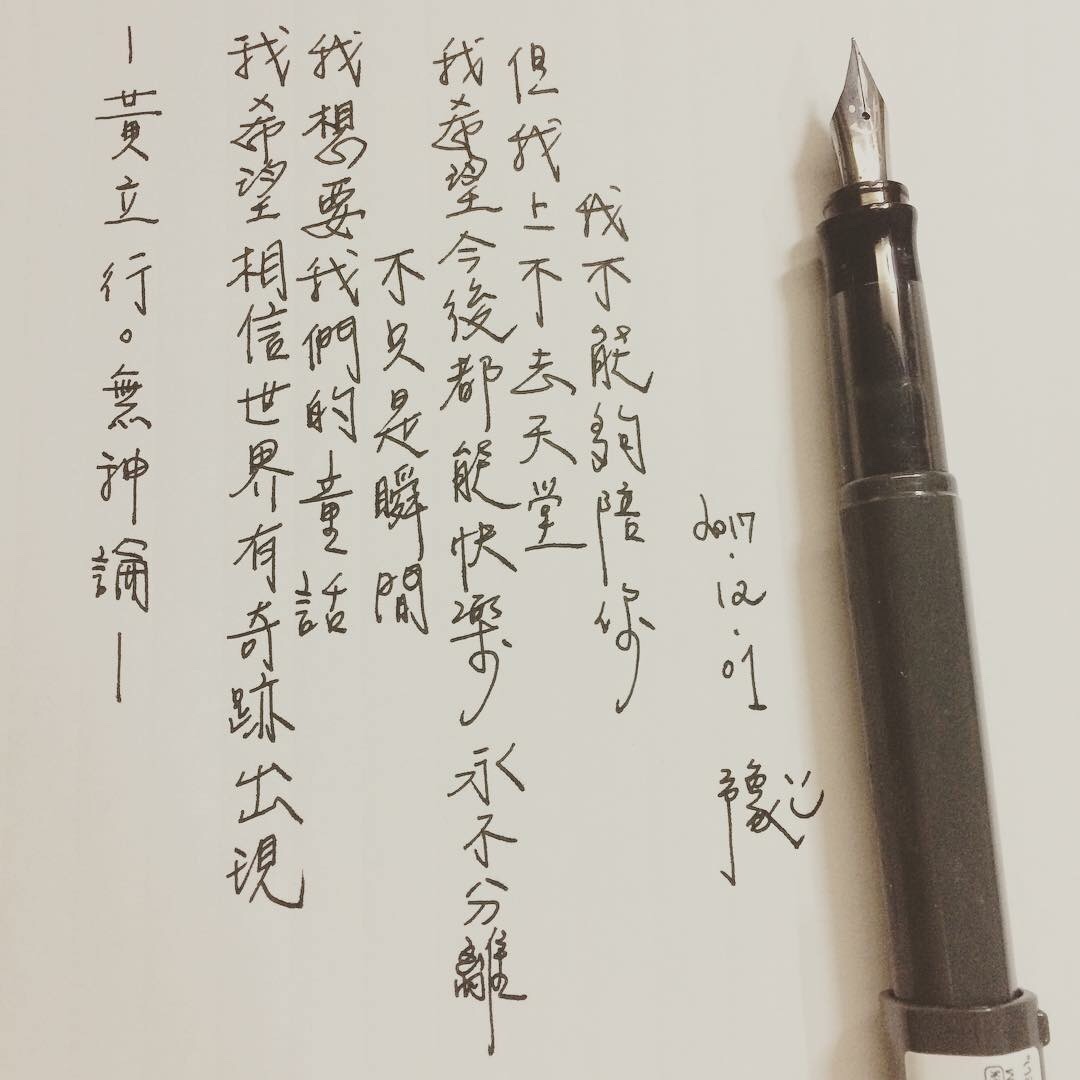 —黃立行。無神論—
我希望相信世界有奇跡出現
我想要我們的童話
不只是瞬間
我希望今後都能快樂 永不分離
但我上不去天堂
我不能夠陪你
2017.12.01
豫